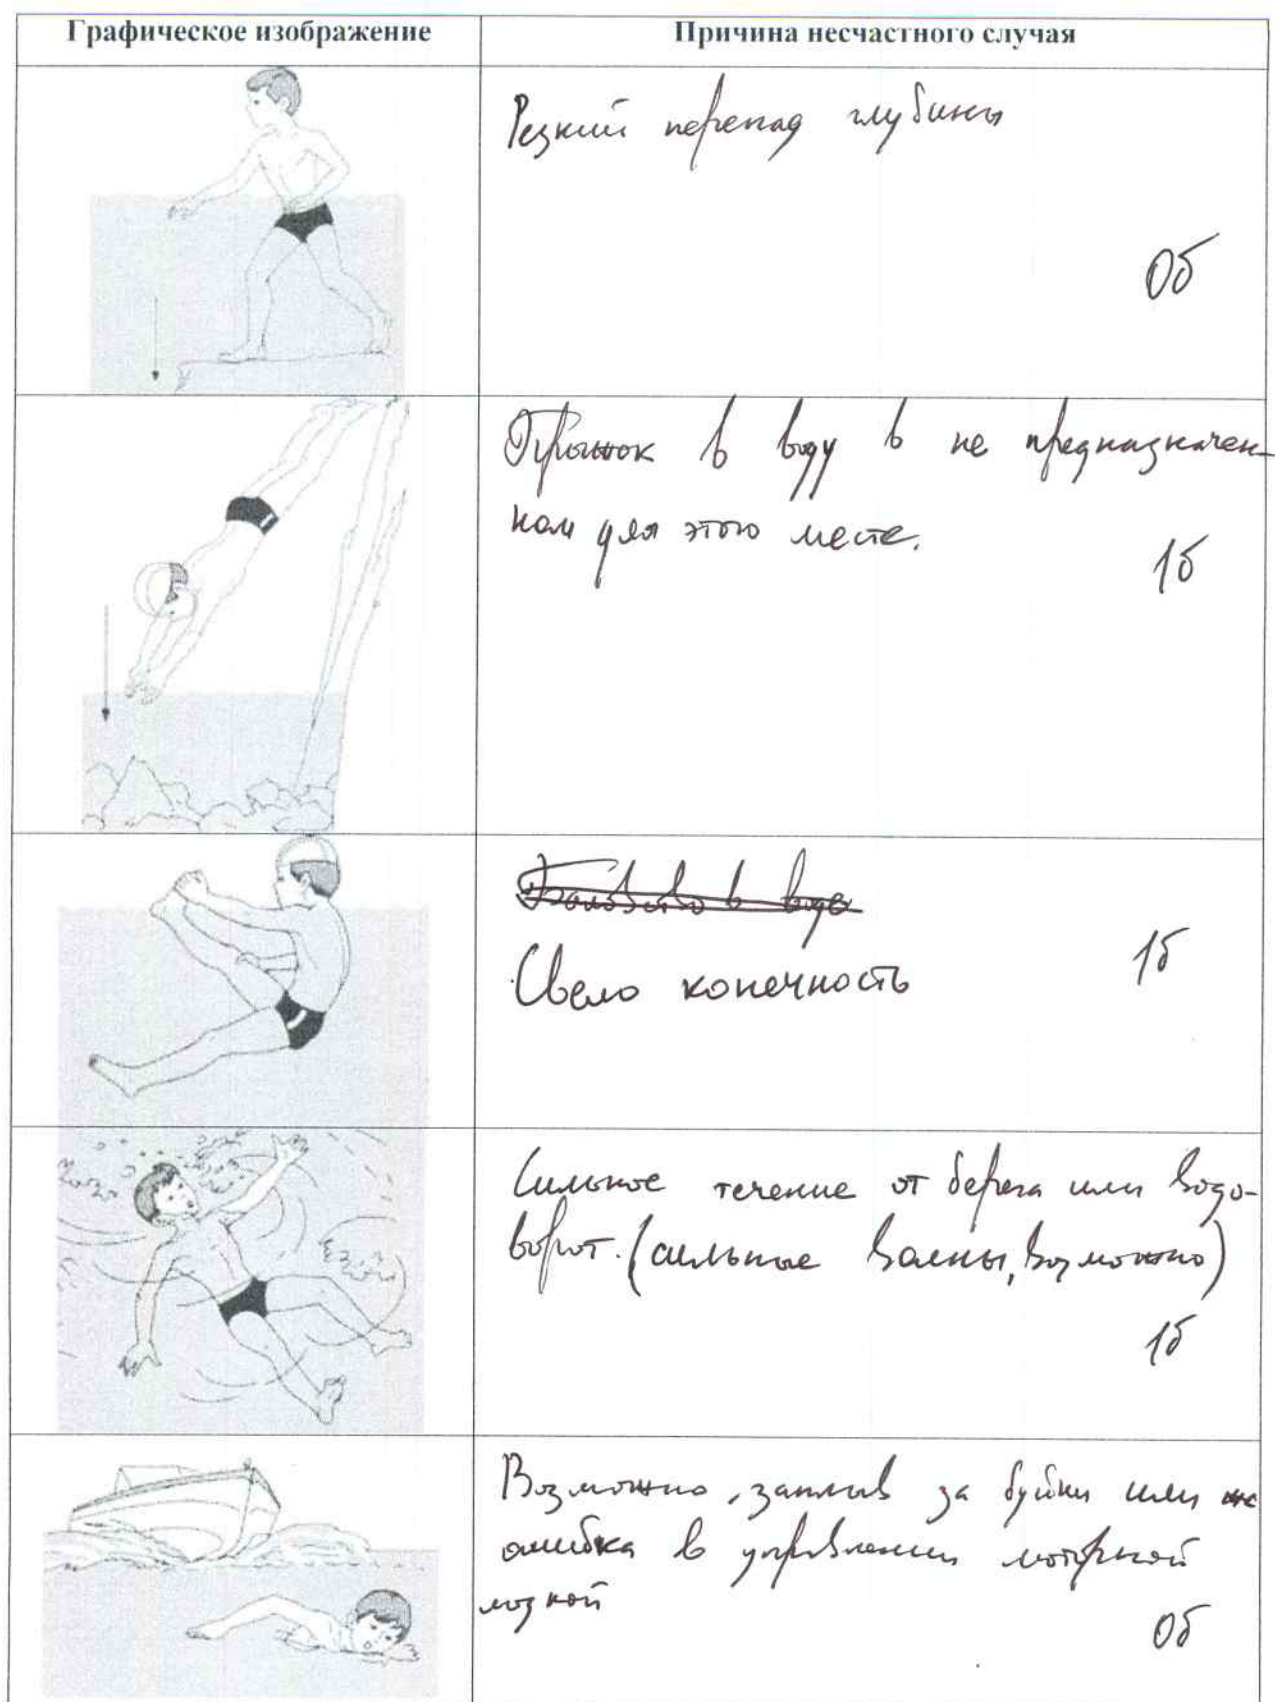 Графическое изображение
Причина несчастного случая
Резкий перепад глубины
0б
Прыжок в воду в не предназначен-
ном для этого месте.
1б
Баловство в воде
Свело конечность
1б
Сильное течение от берега или водо-
ворот. (сильные волны, возможно)
1б
Возможно, заплыв за буйки или
ошибка в управлении моторной
лодкой
0б